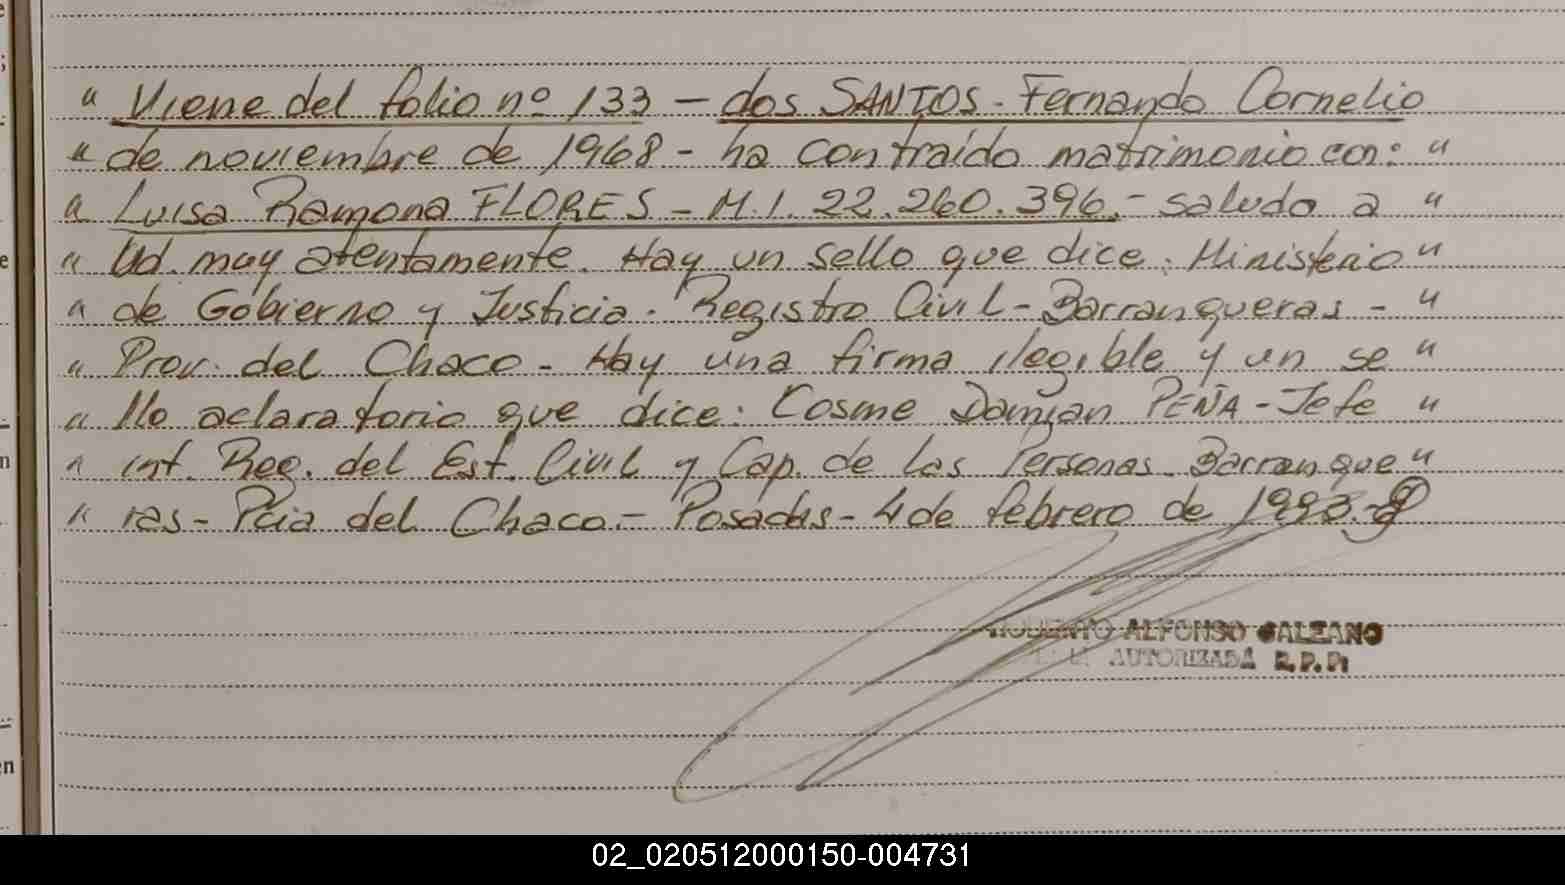 " Viene del folio nº 133 - dos SANTOS - Fernando Cornelio
" de noviembre de 1968 - ha contraído matrimonio con: "
" Luisa Ramona FLORES - M.I. 22.260.396.- saludo a "
" Ud. muy atentamente. Hay un sello que dice: Ministerio "
" de Gobierno y Justicia. Registro Civil - Barranqueras - "
" Prov. del Chaco - Hay una firma ilegible y un se "
" llo aclaratorio que dice: Cosme Damian PEÑA - Jefe "
" int. Reg. del Est. Civil y Cap. de las Personas. Barranque "
" ras - Pcia del Chaco.- Posadas - 4 de febrero de 1993.-
ROBERTO ALFONSO GALEANO
AUTORIZADA R.P.P.
02_020512000150-004731